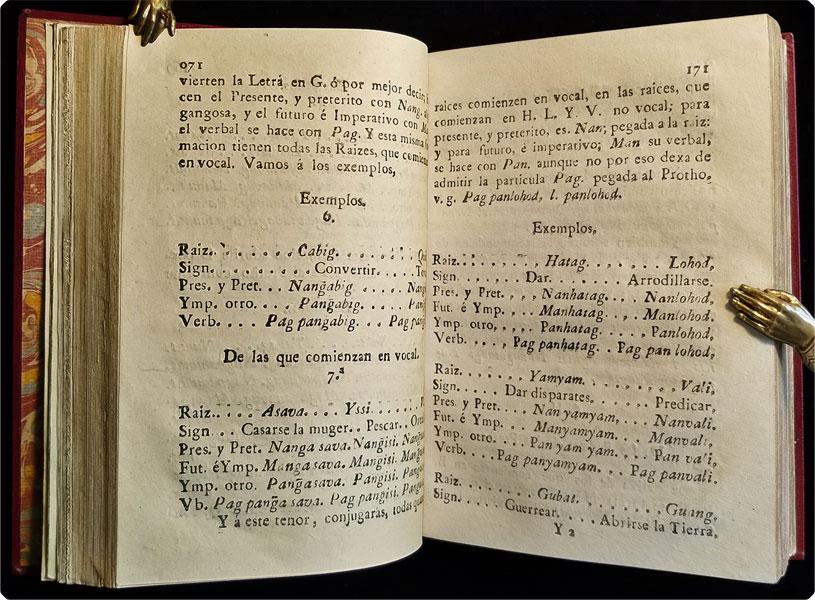 071
vierten la Letra en G. ó por mejor decir,
cen el Presente, y preterito con Nang.
gangosa, y el futuro é Imperativo con
el verbal se hace con Pag. Y esta misma
macion tienen todas las Raizes, que comien
en vocal. Vamos á los exemplos,
Exemplos.
6.
Raiz. . . . . . . . . Cabig. . . . . . . .
Sign. . . . . . . . . Convertir. . . . .
Pres. y Pret. . . Nang̃abig . . . .
Ymp. otro. . . . Pang̃abig. . . .
Verb. . . . Pag pang̃abig. . . Pag
De las que comienzan en vocal.
7.ª
Raiz. . . . . Asava. . . . Yssi . . . . . .
Sign. . . Casarse la muger. . Pescar. .
Pres. y Pret. Nanga sava. Nang̃isi.
Fut. é Ymp. Manga sava. Mang̃isi.
Ymp. otro. Pang̃asava. Pang̃isi.
Vb. Pag pang̃a sava. Pag pang̃isi.
Y á este tenor, conjugarás, todas
171
raices comienzen en vocal, en las raices, que
comienzan en H. L. Y. V. no vocal; para
presente, y preterito, es. Nan; pegada a la raiz:
y para futuro, é imperativo; Man su verbal,
se hace con Pan. aunque no por eso dexa de
admitir la particula Pag. pegada al Protho,
v. g. Pag panlohod, l. panlohod.
Exemplos,
Raiz. . . . . . . , Hatag. . , . . . . Lohod,
Sign. . . . . . Dar. . . . . . Arrodillarse.
Pres. y Pret. , . , Nanhatag. . . . Nanlohod,
Fut. é Ymp. . . . Manhatag. . . Manlohod,
Ymp. otro, . . , Panhatag. . . . Panlohod,
Verb. . . . , Pag panhatag. . Pag pan lohod,
Raiz. . . . . . . Yamyam. . . . . . . , Vali,
Sign. . . . . Dar disparates. . . . . Predicar,
Pres. y Pret. . . . Nan yamyam, . . . Nanvali.
Fut. é Ymp. . . . Manyamyam. . . . Manvali,
Ymp. otro. . . . Pan yam yam. . . . Pan vali,
Verb. . . . Pag panyamyam. . . Pag panvali.
Raiz. . . . . . . . Gubat. . . . . . . , Guang,
Sign. . . . . Guerrear. . . . Abrirse la Tierra,
Y 2